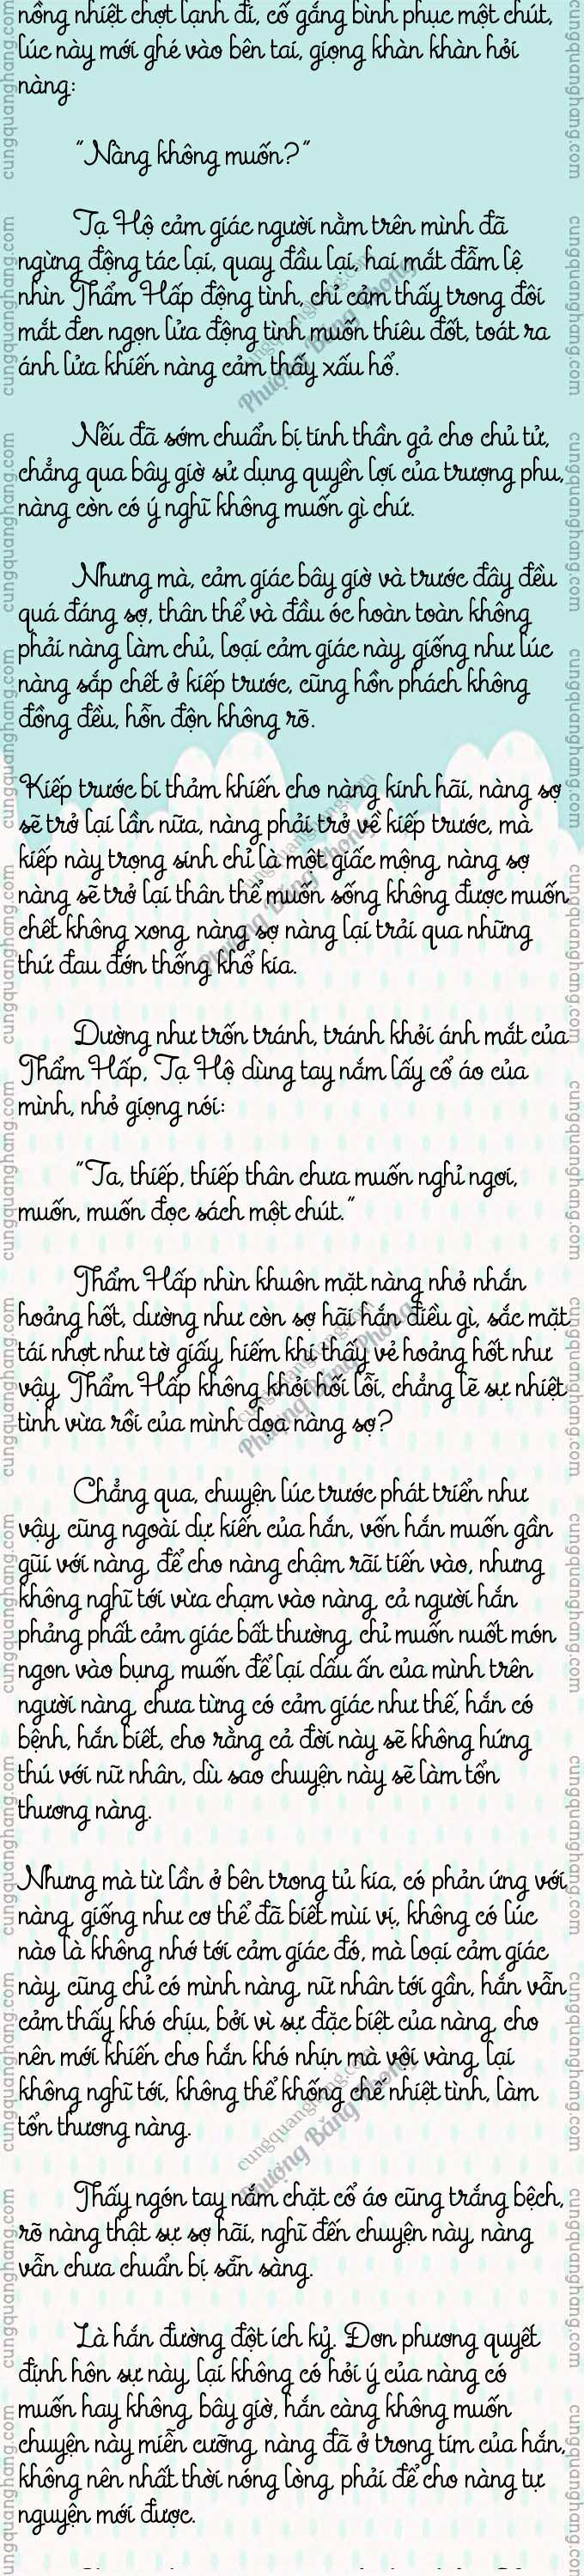 nồng nhiệt chợt lạnh đi, cố gắng bình phục một chút,
lúc này mới ghé vào bên tai, giọng khàn khàn hỏi
nàng:
"Nàng không muốn?"
Tạ Hộ cảm giác người nằm trên mình đã
ngừng động tác lại, quay đầu lại, hai mắt đẫm lệ
nhìn Thẩm Hấp động tình, chỉ cảm thấy trong đôi
mắt đen ngọn lửa động tình muốn thiêu đốt, toát ra
ánh lửa khiến nàng cảm thấy xấu hổ.
Nếu đã sớm chuẩn bị tinh thần gả cho chủ tử,
chẳng qua bây giờ sử dụng quyền lợi của trượng phu,
nàng còn có ý nghĩ không muốn gì chứ.
Nhưng mà, cảm giác bây giờ và trước đây đều
quá đáng sợ, thân thể và đầu óc hoàn toàn không
phải nàng làm chủ, loại cảm giác này, giống như lúc
nàng sắp chết ở kiếp trước, cũng hồn phách không
đồng đều, hỗn độn không rõ.
Kiếp trước bi thảm khiến cho nàng kinh hãi, nàng sợ
sẽ trở lại lần nữa, nàng phải trở về kiếp trước, mà
kiếp này trọng sinh chỉ là một giấc mộng, nàng sợ
nàng sẽ trở lại thân thể muốn sống không được muốn
chết không xong, nàng sợ nàng lại trải qua những
thứ đau đớn thống khổ kia.
Dường như trốn tránh, tránh khỏi ánh mắt của
Thẩm Hấp, Tạ Hộ dùng tay nắm lấy cổ áo của
mình, nhỏ giọng nói:
"Ta, thiếp, thiếp thân chưa muốn nghỉ ngơi,
muốn, muốn đọc sách một chút."
Thẩm Hấp nhìn khuôn mặt nàng nhỏ nhắn
hoảng hốt, dường như còn sợ hãi hắn điều gì, sắc mặt
tái nhợt như tờ giấy, hiếm khi thấy vẻ hoảng hốt như
vậy, Thẩm Hấp không khỏi hối lỗi, chẳng lẽ sự nhiệt
tình vừa rồi của mình dọa nàng sợ?
Chẳng qua, chuyện lúc trước phát triển như
vậy, cũng ngoài dự kiến của hắn, vốn hắn muốn gần
gũi với nàng, để cho nàng chậm rãi tiến vào, nhưng
không nghĩ tới vừa chạm vào nàng, cả người hắn
phảng phất cảm giác bất thường, chỉ muốn nuốt món
ngon vào bụng, muốn để lại dấu ấn của mình trên
người nàng, chưa từng có cảm giác như thế, hắn có
bệnh, hắn biết, cho rằng cả đời này sẽ không hứng
thú với nữ nhân, dù sao chuyện này sẽ làm tổn
thương nàng.
Nhưng mà từ lần ở bên trong tủ kia, có phản ứng với
nàng, giống như cơ thể đã biết mùi vị, không có lúc
nào là không nhớ tới cảm giác đó, mà loại cảm giác
này, cũng chỉ có mình nàng, nữ nhân tới gần, hắn vẫn
cảm thấy khó chịu, bởi vì sự đặc biệt của nàng, cho
nên mới khiến cho hắn khó nhịn mà vội vàng, lại
không nghĩ tới, không thể khống chế nhiệt tình, làm
tổn thương nàng.
Thấy ngón tay nắm chặt cổ áo cũng trắng bệch,
rõ nàng thật sự sợ hãi, nghĩ đến chuyện này, nàng
vẫn chưa chuẩn bị sẵn sàng.
Là hắn đường đột ích kỷ. Đơn phương quyết
định hôn sự này, lại không có hỏi ý của nàng có
muốn hay không, bây giờ, hắn càng không muốn
chuyện này miễn cưỡng, nàng đã ở trong tim của hắn,
không nên nhất thời nóng lòng, phải để cho nàng tự
nguyện mới được.